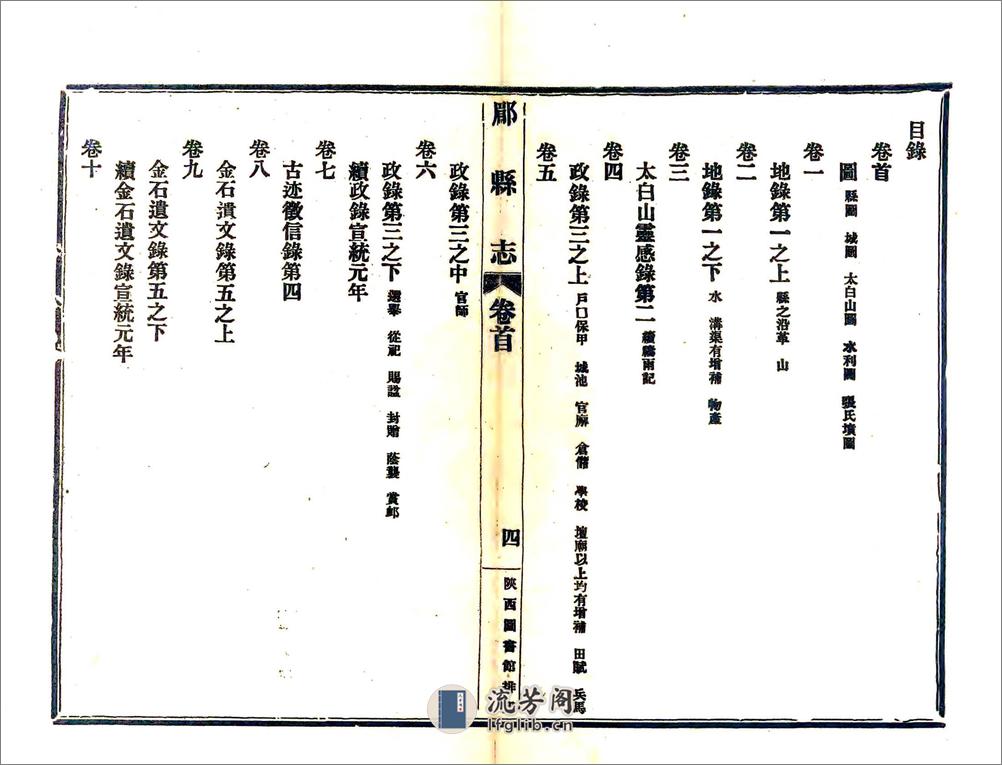 目錄
卷首
圖 縣圖 城圖 太白山圖 水利圖 張氏墳圖
卷一
地錄第一之上 縣之沿革 山
卷二
地錄第一之下 水 溝渠有增補 物產
卷三
太白山靈感錄第二 續禱雨記
卷四
政錄第三之上 戶口保甲 城池 官廨 倉儲 學校 壇廟以上均有增補 田賦 兵馬
卷五
郿縣志 卷首 四 陝西圖書館排
政錄第三之中 官師
卷六
政錄第三之下 選舉 從祀 賜諡 封贈 蔭襲 賞卹
續政錄宣統元年
卷七
古迹徵信錄第四
卷八
金石遺文錄第五之上
卷九
金石遺文錄第五之下
續金石遺文錄宣統元年
卷十
流芳阁
lfglib.cn